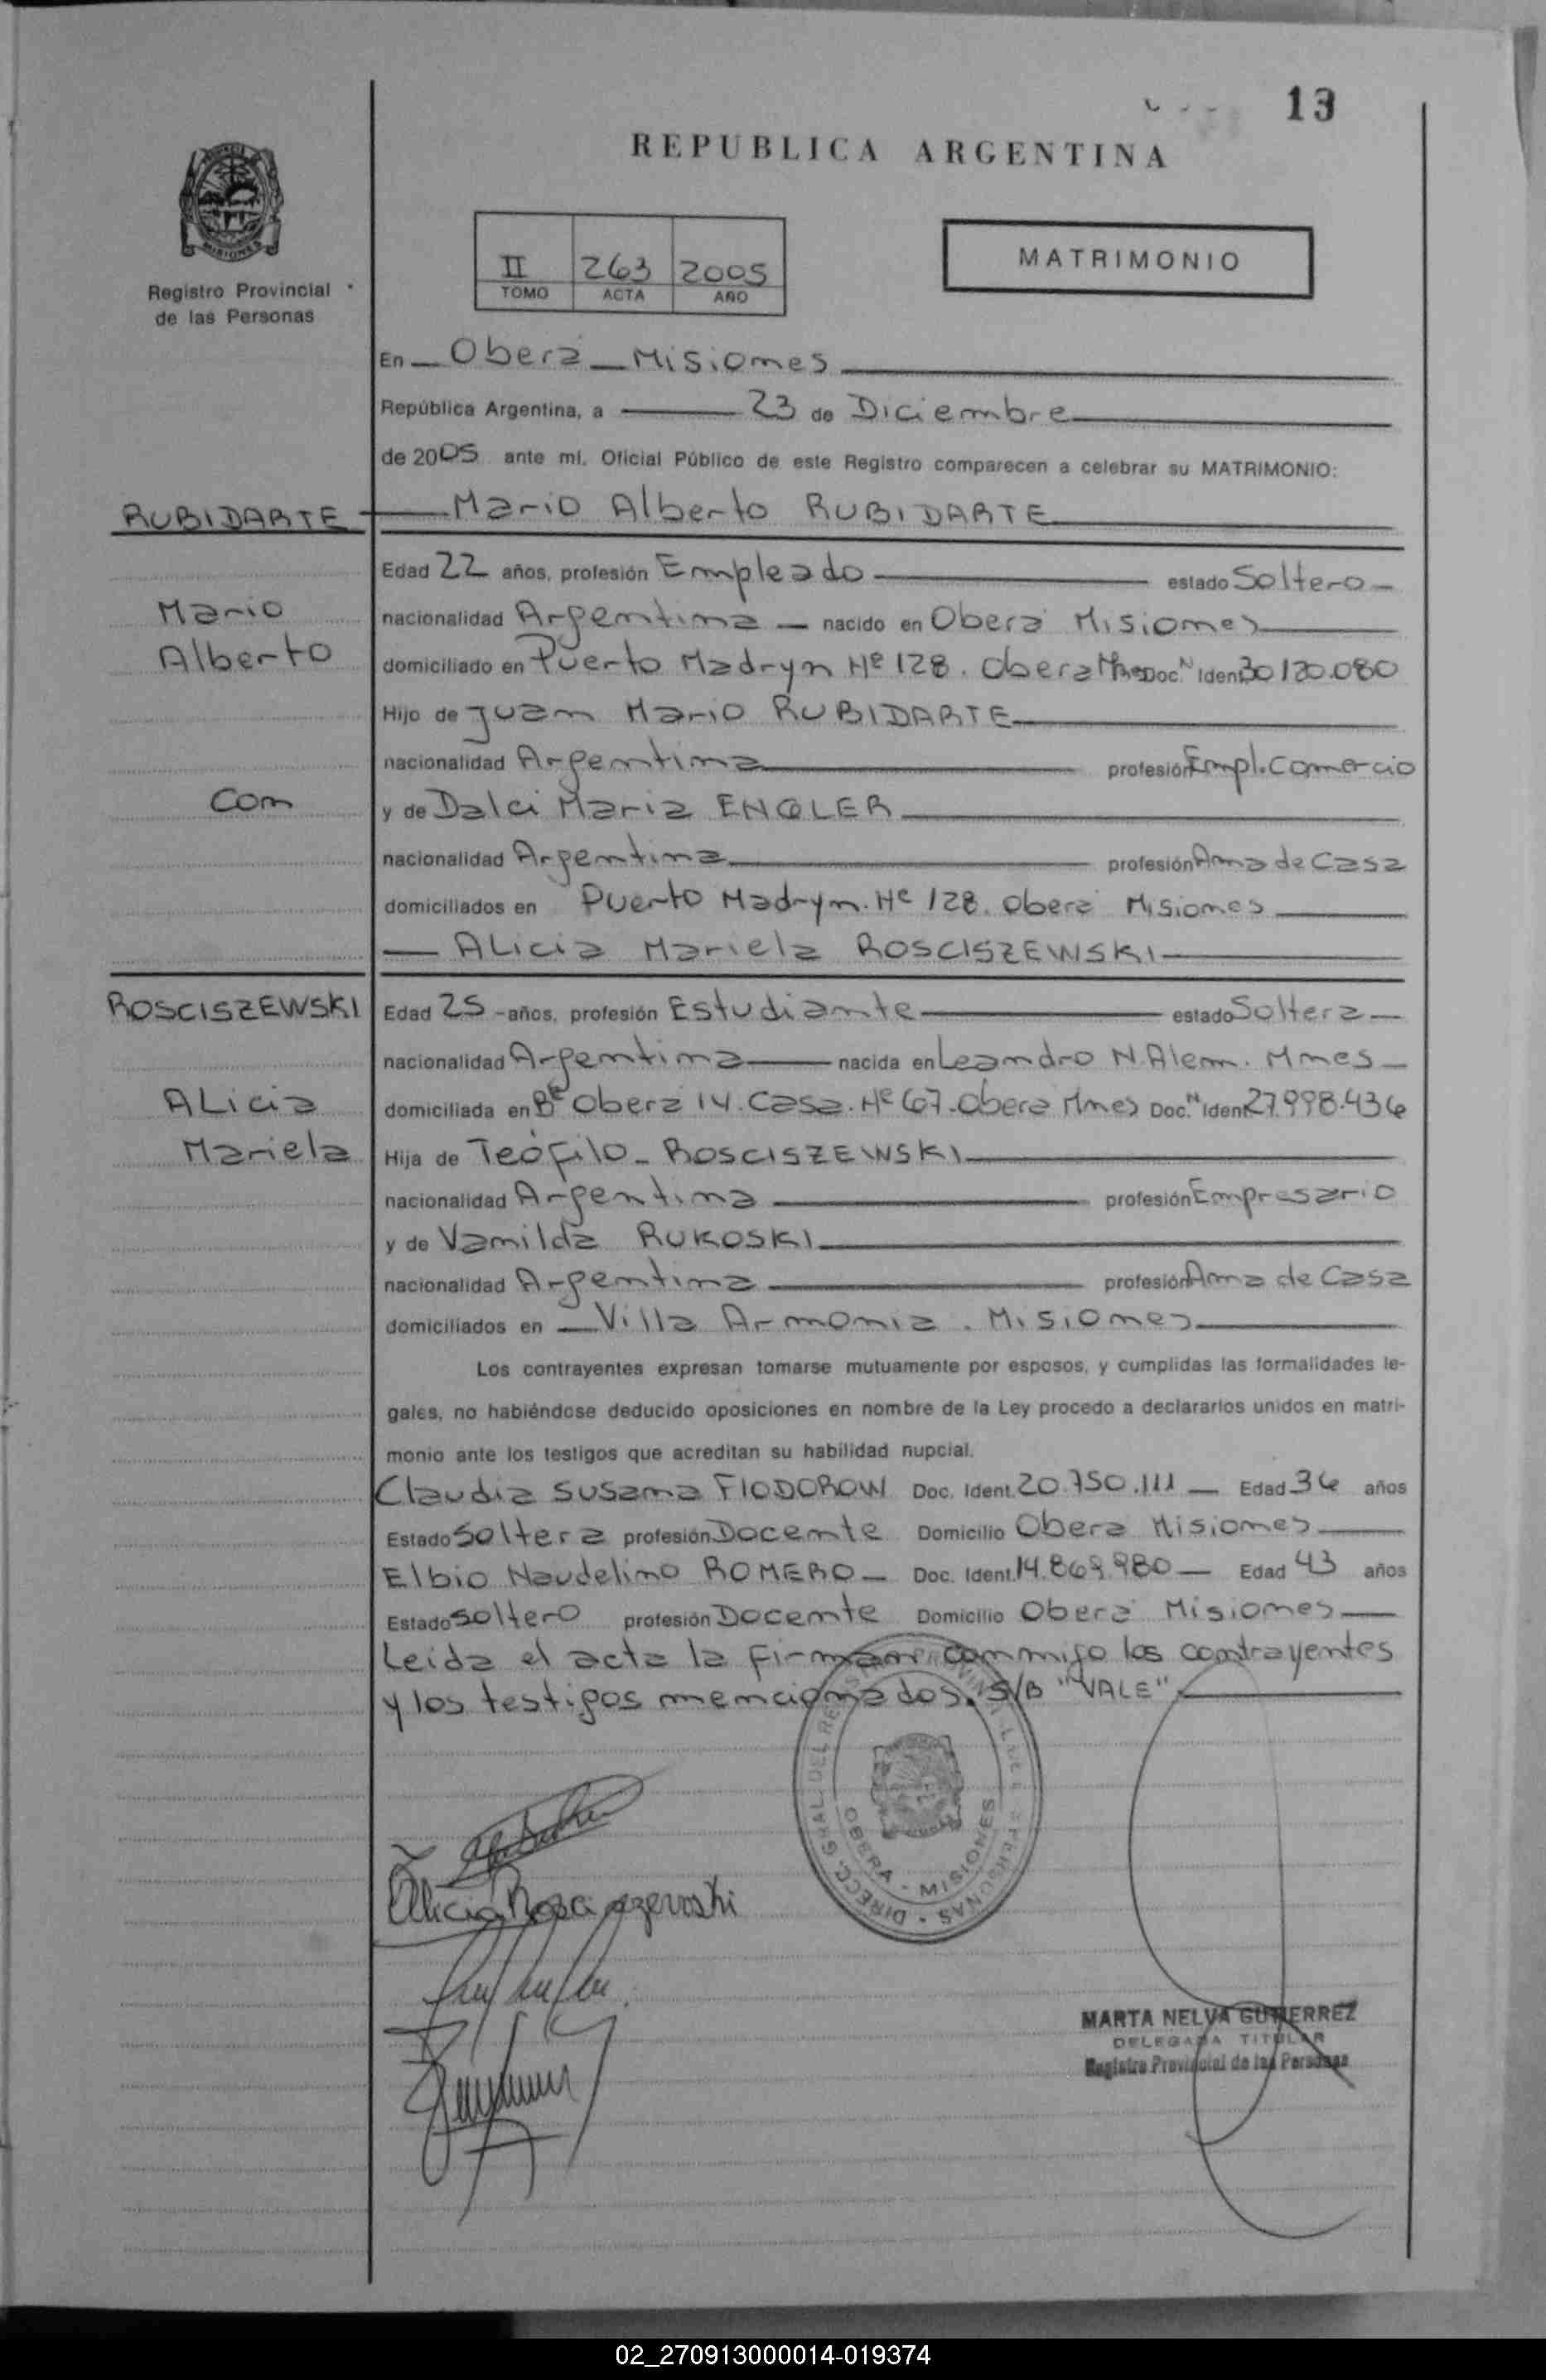 13
REPUBLICA ARGENTINA
MISIONES
Registro Provincial
de las Personas
II 263 2005
TOMO ACTA AÑO
MATRIMONIO
En Oberá Misiones
República Argentina, a 23 de Diciembre
de 2005 ante mí, Oficial Público de este Registro comparecen a celebrar su MATRIMONIO:
RUBIDARTE Mario Alberto RUBIDARTE
Edad 22 años, profesión Empleado estado Soltero
Mario nacionalidad Argentina nacido en Oberá Misiones
Alberto domiciliado en Puerto Madryn Nº 128. Oberá Mnes Doc. N Ident. 30120.080
Hijo de Juan Mario RUBIDARTE
nacionalidad Argentina profesión Empl. Comercio
Con y de Dalci Maria ENGLER
nacionalidad Argentina profesión Ama de Casa
domiciliados en Puerto Madryn. Nº 128. Oberá Misiones
Alicia Mariela ROSCISZEWSKI
ROSCISZEWSKI Edad 25 años, profesión Estudiante estado Soltera
nacionalidad Argentina nacida en Leandro N. Alem. Mnes
Alicia domiciliada en Bº Oberá 14. Casa. Nº 67. Oberá Mnes Doc. N Ident. 27.998.436
Mariela Hija de Teófilo ROSCISZEWSKI
nacionalidad Argentina profesión Empresario
y de Vanilda RUKOSKI
nacionalidad Argentina profesión Ama de Casa
domiciliados en Villa Armonia. Misiones
Los contrayentes expresan tomarse mutuamente por esposos, y cumplidas las formalidades le-
gales, no habiéndose deducido oposiciones en nombre de la Ley procedo a declararlos unidos en matri-
monio ante los testigos que acreditan su habilidad nupcial.
Claudia Susana FIODOROW Doc. Ident. 20.750.111 Edad 36 años
Estado Soltera profesión Docente Domicilio Oberá Misiones
Elbio Naudelino ROMERO Doc. Ident. 14.869.980 Edad 43 años
Estado Soltero profesión Docente Domicilio Oberá Misiones
Leida el acta la firman conmigo los contrayentes
y los testigos mencionados. S/B "VALE".
OBERA - MISIONES
Alicia Rosciszewski
MARTA NELVA GUTIERREZ
DELEGADA TITULAR
Registro Provincial de las Personas
02_270913000014-019374